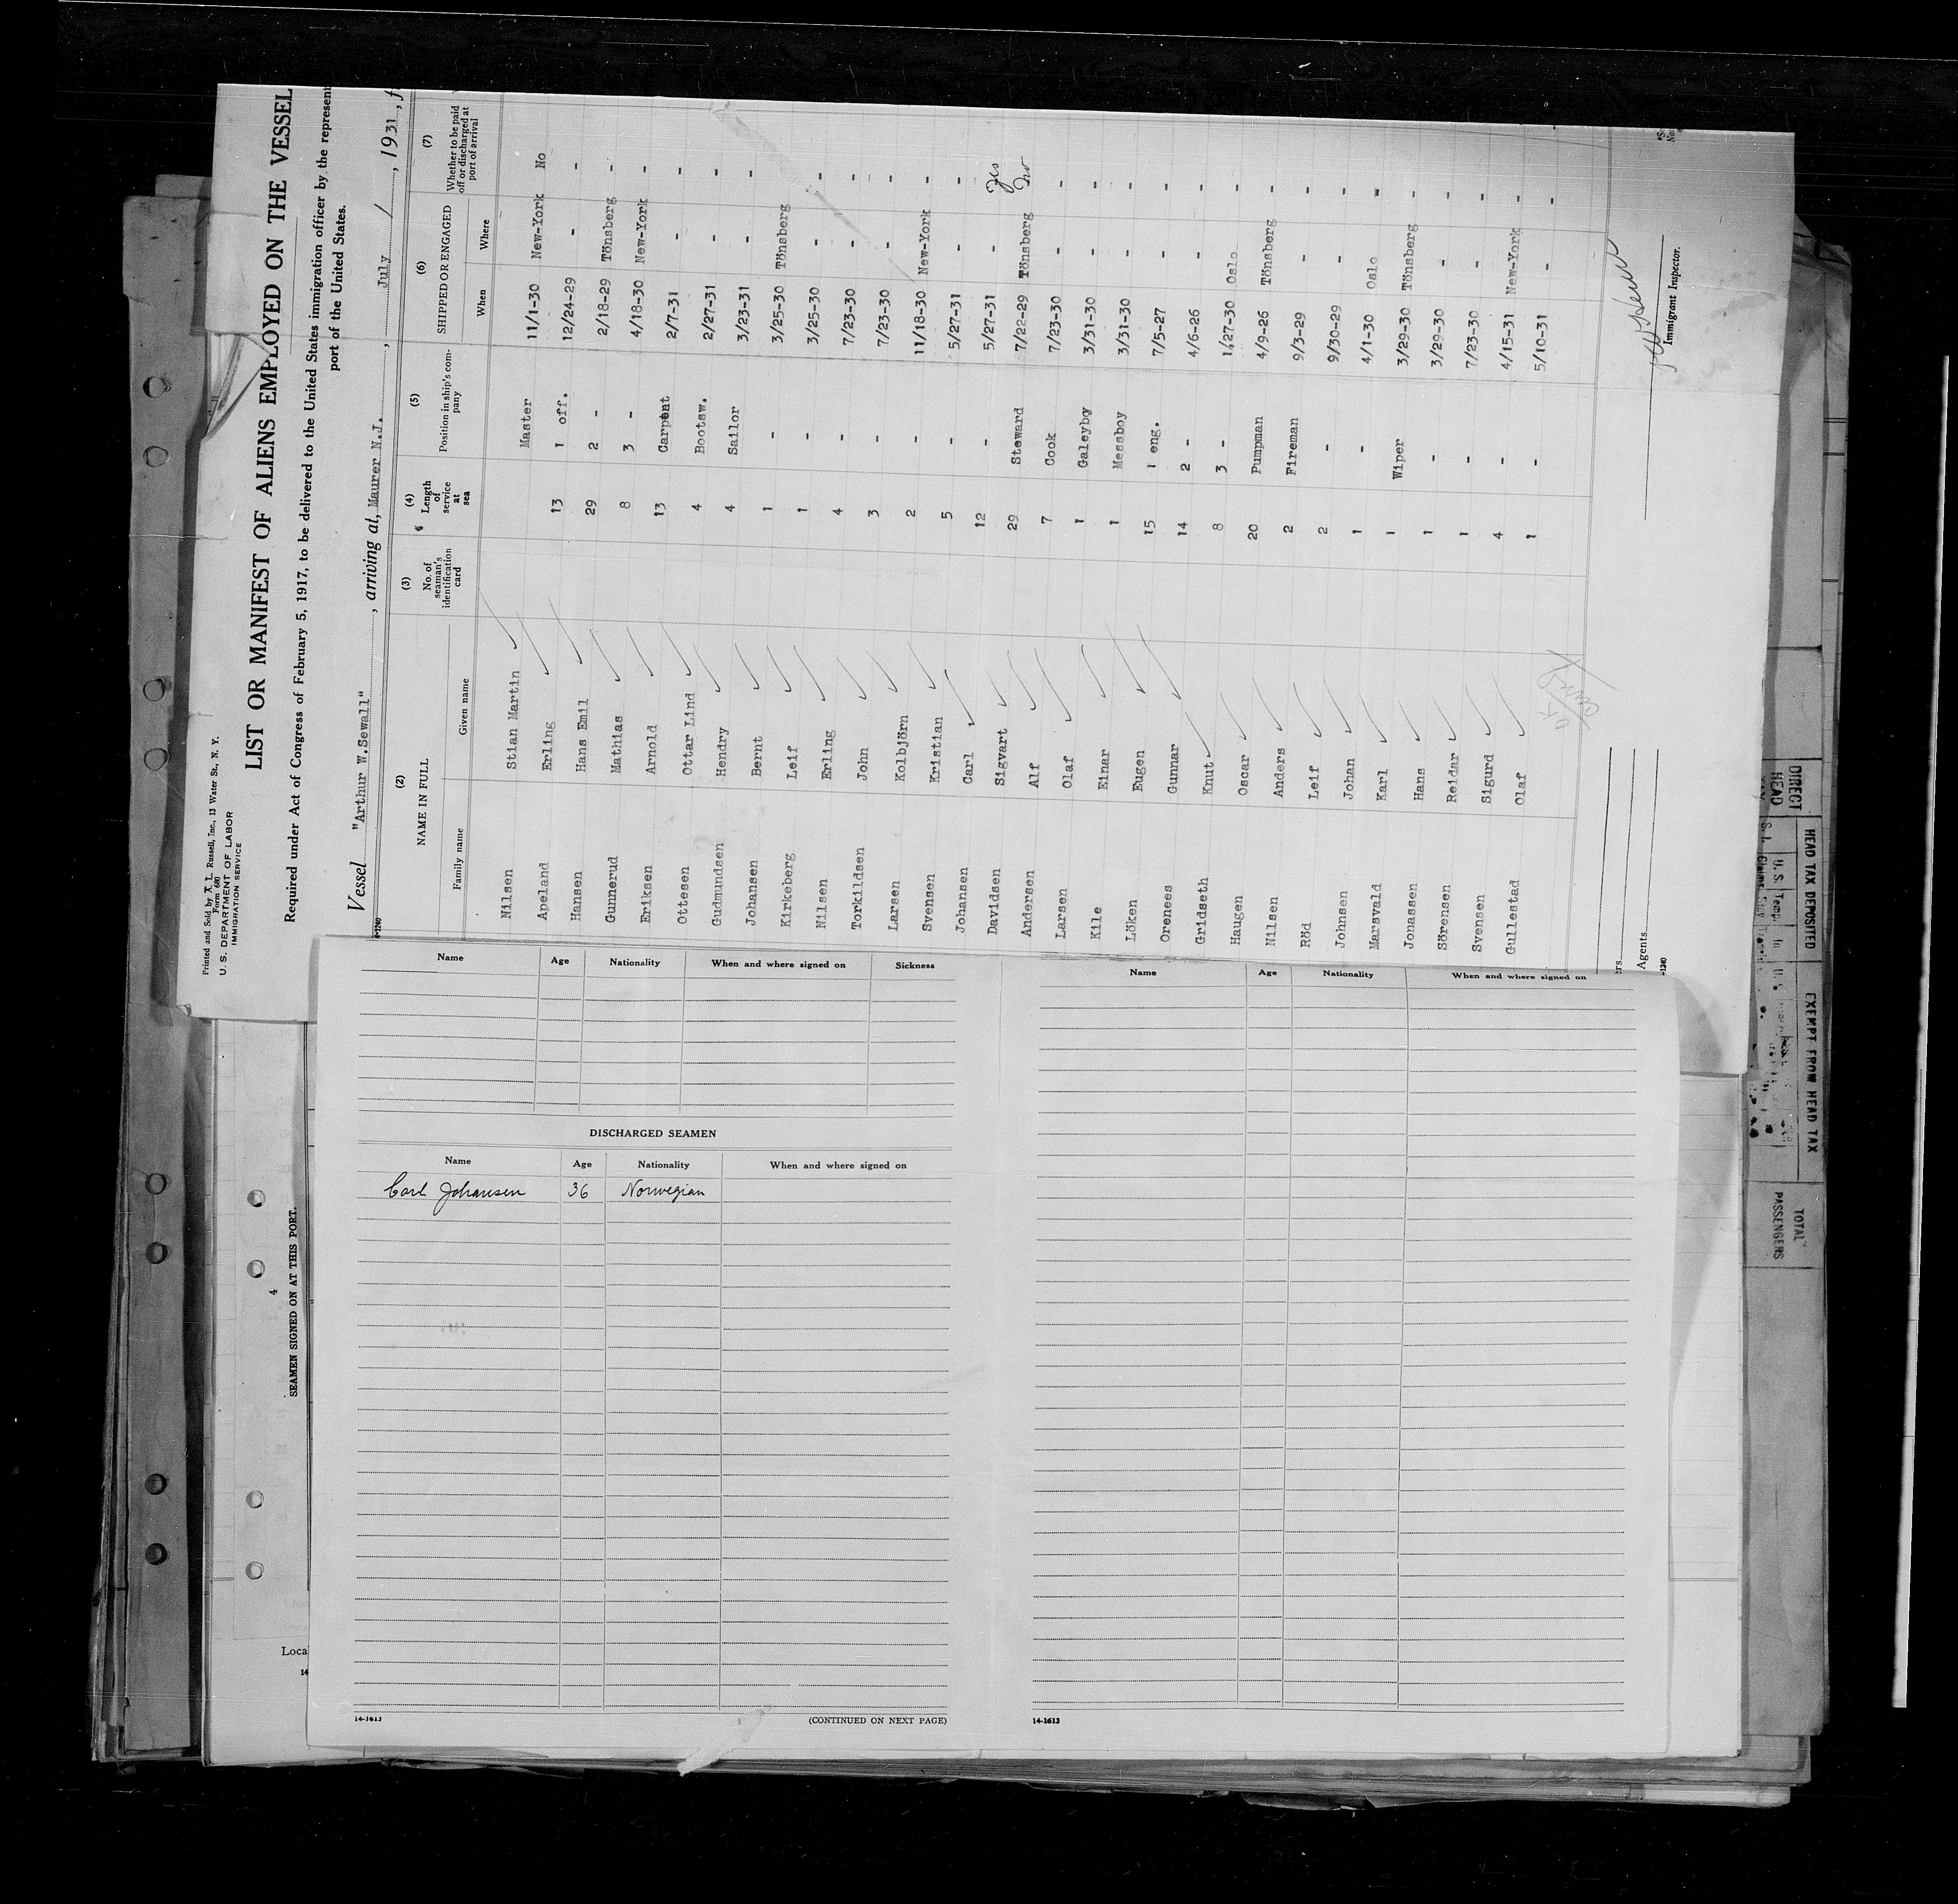 Printed and Sold by A. L. Russell, Inc., 13 Water St., N. Y.
Form 680
U. S. DEPARTMENT OF LABOR
IMMIGRATION SERVICE
LIST OR MANIFEST OF ALIENS EMPLOYED ON THE VESSEL
Required under Act of Congress of February 5, 1917, to be delivered to the United States immigration officer by the represent
port of the United States.
Vessel "Arthur W.Sewall", arriving at, Maurer N.J., July 1, 1931, f
(2) (3) (4) (5) (6) (7)
NAME IN FULL No. of seaman's identification card Length of service at sea Position in ship's company SHIPPED OR ENGAGED Whether to be paid off or discharged at port of arrival
Family name Given name When Where
Nilsen Stian Martin Master 11/1-30 New-York No
Apeland Erling 13 1 off. 12/24-29 - -
Hansen Hans Emil 29 2 - 2/18-29 Tönsberg -
Gunnerud Mathias 8 3 - 4/18-30 New-York -
Eriksen Arnold 13 Carpent 2/7-31 - -
Ottesen Ottar Lind 4 Bootsw. 2/27-31 - -
Gudmundsen Hendry 4 Sailor 3/23-31 - -
Johansen Bernt 1 - 3/25-30 Tönsberg
Kirkeberg Leif 1 - 3/25-30 - -
Nilsen Erling 4 - 7/23-30 - -
Torkildsen John 3 - 7/23-30 - -
Larsen Kolbjörn 2 - 11/18-30 New-York -
Svensen Kristian 5 - 5/27-31 - -
Johansen Carl 12 - 5/27-31 - Yes
Davidsen Sigvart 29 Steward 7/22-29 Tönsberg No
Andersen Alf 7 Cook 7/23-30 - -
Larsen Olaf 1 Galeyboy 3/31-30 - -
Kile Einar 1 Messboy 3/31-30 - -
Löken Eugen 15 1 eng. 7/5-27 - -
Orenees Gunnar 14 2 - 4/6-26 - -
Gridseth Knut 8 3 - 1/27-30 Oslo -
Haugen Oscar 20 Pumpman 4/9-26 Tönsberg -
Nilsen Anders 2 Fireman 9/3-29 - -
Röd Leif 2 - 9/30-29 - -
Johnsen Johan 1 - 4/1-30 Oslo -
Marsvald Karl 1 Wiper 3/29-30 Tönsberg -
Jonassen Hans 1 - 3/29-30 - -
Sörensen Reidar 1 - 7/23-30 - -
Svensen Sigurd 4 - 4/15-31 New-York -
Gullestad Olaf 1 - 5/10-31 - -
Immigrant Inspector.
Agents
Name Age Nationality When and where signed on Sickness
DISCHARGED SEAMEN
Name Age Nationality When and where signed on
Carl Johansen 36 Norwegian
14-1613 (CONTINUED ON NEXT PAGE)
Name Age Nationality When and where signed on
14-1613
4
SEAMEN SIGNED ON AT THIS PORT.
Loca
14
DIRECT
HEAD
HEAD TAX DEPOSITED
EXEMPT FROM HEAD TAX
TOTAL
PASSENGERS